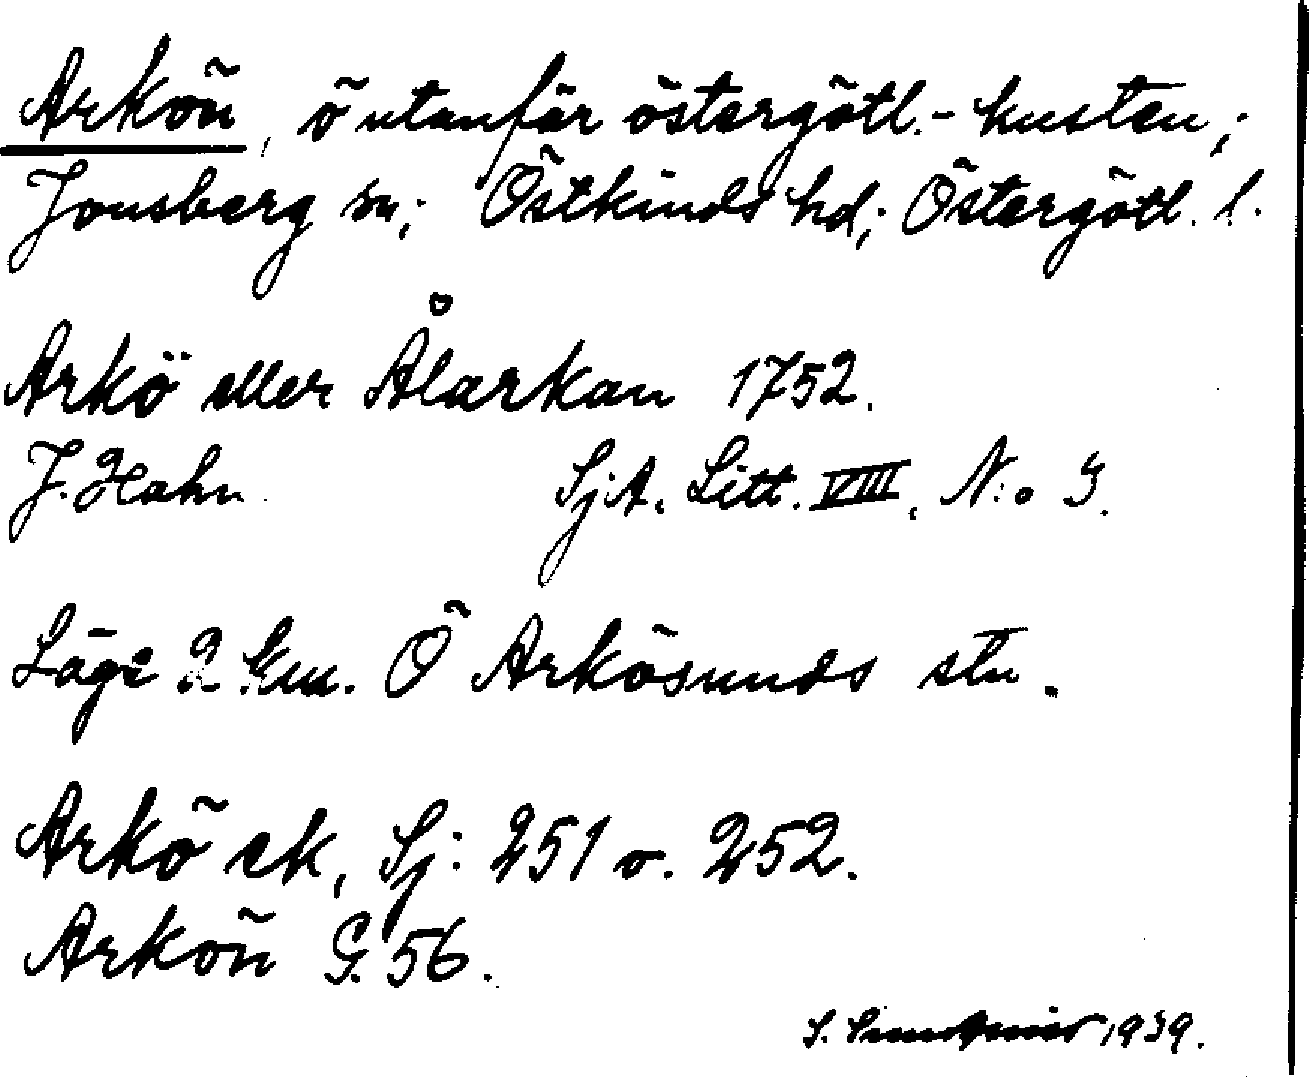 Arkön, ö utanför östergötl.-kusten;
Jonsberg sn; Östkinds hd; Östergötl. l.
Arkö eller Ålarkan 1752.
J. Hahn. SjA. Litt. VIII, N:o 3.
Läge 2 km. Ö Arkösunds stn.
Arkö ek, Sj: 251 o. 252.
Arkön G. 56.
S. 1939.